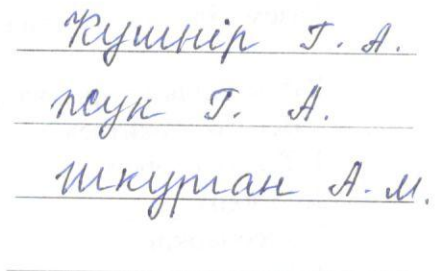 Кушнір Г. А.
Жук Г. А.
Шкурган А. М.